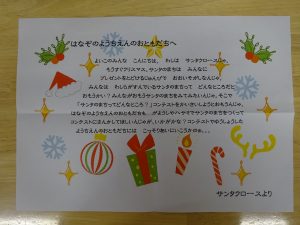 はなぞのようちえんのおともだちへ
よいこのみんな こんにちは。 わしは サンタクロースじゃ。
もうすぐクリスマス。サンタのまちは みんなに
プレゼントをとどけるじゅんびで おおいそがしなんじゃ。
みんなは わしがすんでいるサンタのまちって どんなところだと
おもうかい？みんながおもうサンタのまちをみてみたいんじゃ。そこで
「サンタのまちってどんなところ？」コンテストをかいさいしようとおもうんじゃ。
はなぞのようちえんのおともだちも がようしやハサミでサンタのまちをつくって
コンテストにさんかしてほしいんじゃが、いかがかな？コンテストでゆうしょうした
ようちえんのおともだちには こっそりあいにいこうかのぉ。。。
サンタクロースより